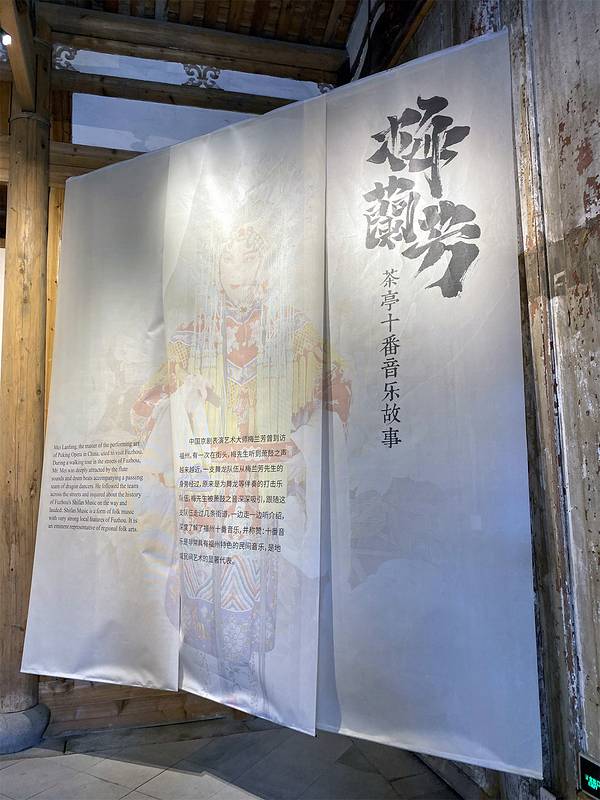 梅蘭芳
茶亭十番音乐故事
中国京剧表演艺术大师梅兰芳曾到访
福州，有一次在街头，梅先生听到箫鼓之声
越来越近，一支舞龙队伍从梅兰芳先生的
身旁经过，原来是为舞龙等伴奏的打击乐
队伍，梅先生被箫鼓之音深深吸引，跟随这
支队伍走过几条街道，一边走一边听介绍，
深度了解了福州十番音乐，并称赞：十番音
乐是非常具有福州特色的民间音乐，是地
域民间艺术的显著代表。
Mei Lanfang, the master of the performing art
of Peking Opera in China, used to visit Fuzhou.
During a walking tour in the streets of Fuzhou,
Mr. Mei was deeply attracted by the flute
sounds and drum beats accompanying a passing
team of dragon dancers. He followed the team
across the streets and inquired about the history
of Fuzhou's Shifan Music on the way and
lauded: Shifan Music is a form of folk music
with very strong local features of Fuzhou. It is
an eminent representative of regional folk arts.